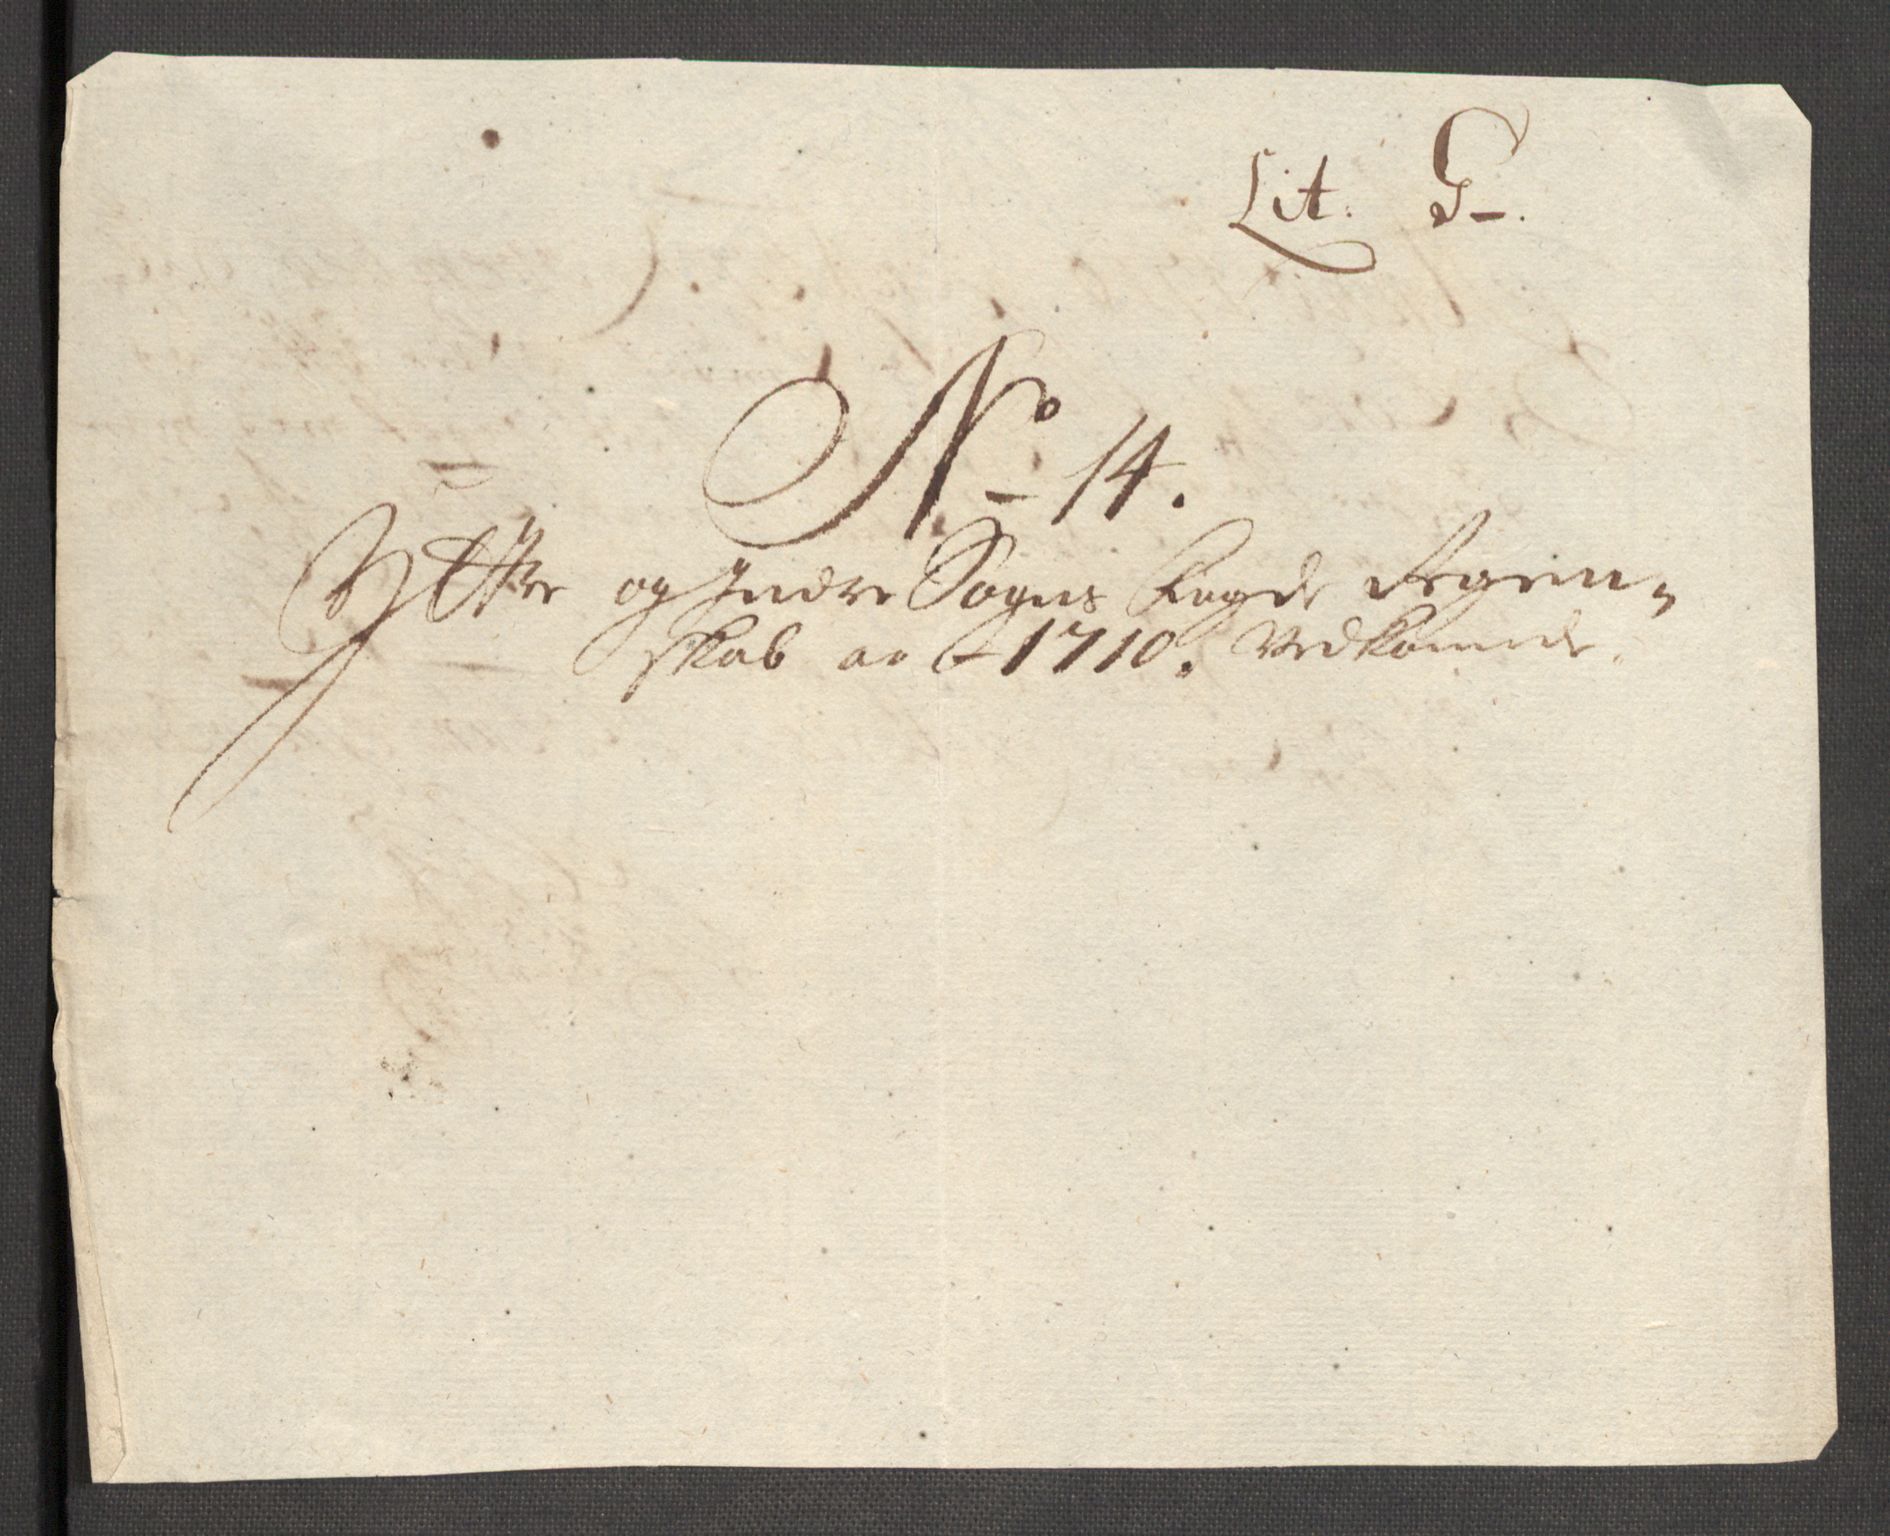 Lit. G.
No 14.
Yttre og Indre Sogns Fogde Regen-
skab ao 1710. Vedkomende.